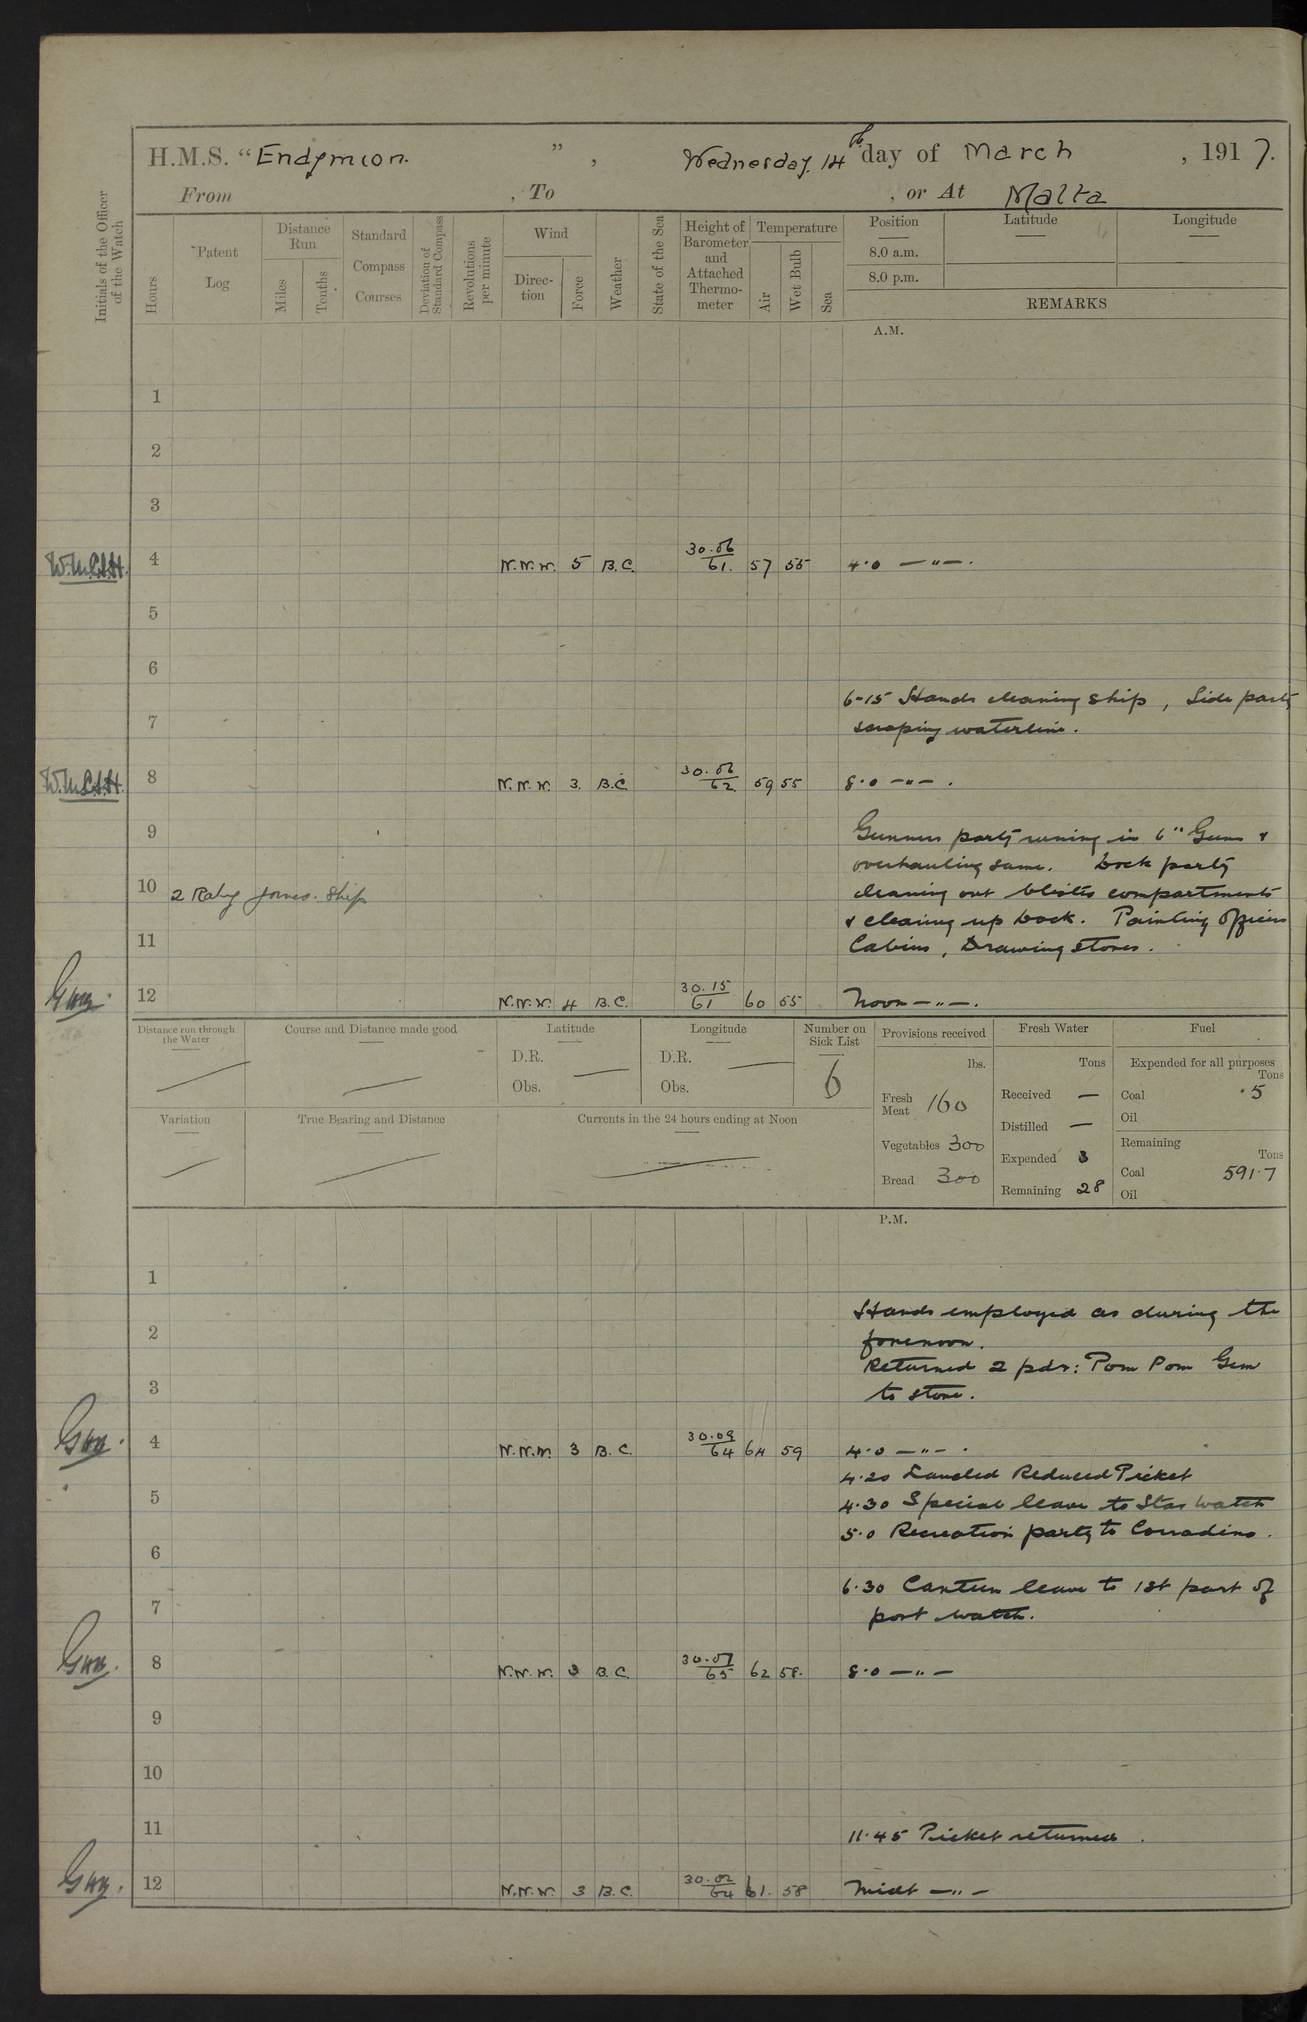 H.M.S. "Endymion.", Wednesday 14th day of March, 1917.
From , To , or At Malta
Initials of the Officer of the Watch
Hours
Patent Log
Distance Run
Miles
Tenths
Standard Compass Courses
Deviation of Standard Compass
Revolutions per minute
Wind
Direction
Force
Weather
State of the Sea
Height of Barometer and Attached Thermometer
Temperature
Air
Wet Bulb
Sea
Position
Latitude
Longitude
8.0 a.m.
8.0 p.m.
REMARKS
A.M.
1
2
3
4 N.N.W. 5 B.C. 30.06 61. 57 55 4.0 —"—.
5
6
6-15 Hands cleaning ship, Side party
7
scraping waterline.
8 N.N.W. 3. B.C. 30.06 62. 59 55 8.0 —"—.
9
Gunners party in 6" Guns &
overhauling same. Dock party
10 2 Joined Ship
cleaning out compartments
& clearing up Dock. Painting Officers
11
Cabins, Drawing Stores.
12 N.N.W. 4 B.C. 30.15 61 60 55 Noon —"—.
Distance run through the Water
Course and Distance made good
Latitude
D.R.
Obs.
Longitude
D.R.
Obs.
Number on Sick List
6
Provisions received
lbs.
Fresh Meat 160
Vegetables 300
Bread 300
Fresh Water
Tons
Received —
Distilled —
Expended 3
Remaining 28
Fuel
Expended for all purposes
Tons
Coal .5
Oil
Remaining
Tons
Coal 591.7
Oil
Variation
True Bearing and Distance
Currents in the 24 hours ending at Noon
P.M.
1
Hands employed as during the
2
forenoon.
Returned 2 pdr: Pom Pom Gun
3
to store.
4 N.N.W. 3 B.C. 30.09 64 64 59 4.0 —"—.
4.20 Landed Reduced Picket
5
4.30 Special leave to Star Watch
5.0 Recreation party to Corradino.
6
6.30 Canteen leave to 1st part of
7
port watch.
8 N.N.W. 3 B.C. 30.07 65 62 58. 8.0 —"—
9
10
11
11.45 Picket returned.
12 N.N.W. 3 B.C. 30.02 64 61. 58 Midt —"—